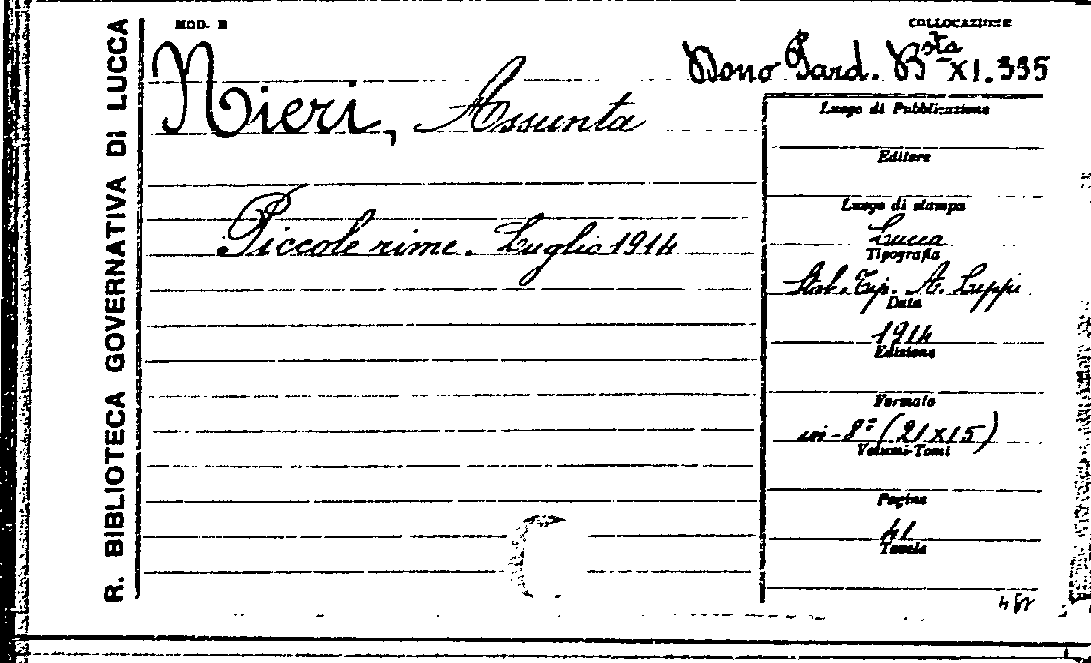 R. BIBLIOTECA GOVERNATIVA DI LUCCA
MOD. B
COLLOCAZIONE
Dono Pard. Bsta XI. 335
Nieri, Assunta
Piccole rime. Luglio 1914
Luogo di Pubblicazione
Editore
Luogo di stampa
Lucca
Tipografia
Stab. Tip. A. Luppi
Data
1914
Edizione
Formato
in-8º (21x15)
Volumi-Tomi
Pagine
41
Tavole